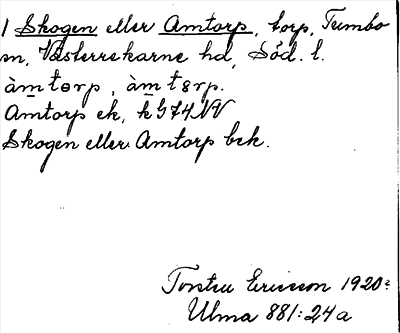 1 Skogen eller Amtorp, torp, Tumbo
sn, Västerrekarne hd, Söd. l.
àmtørp, àmtørp.
Amtorp ek, k G74NV
Skogen eller Amtorp bek.
Torsten Ericsson 1920?
Ulma 881:24a